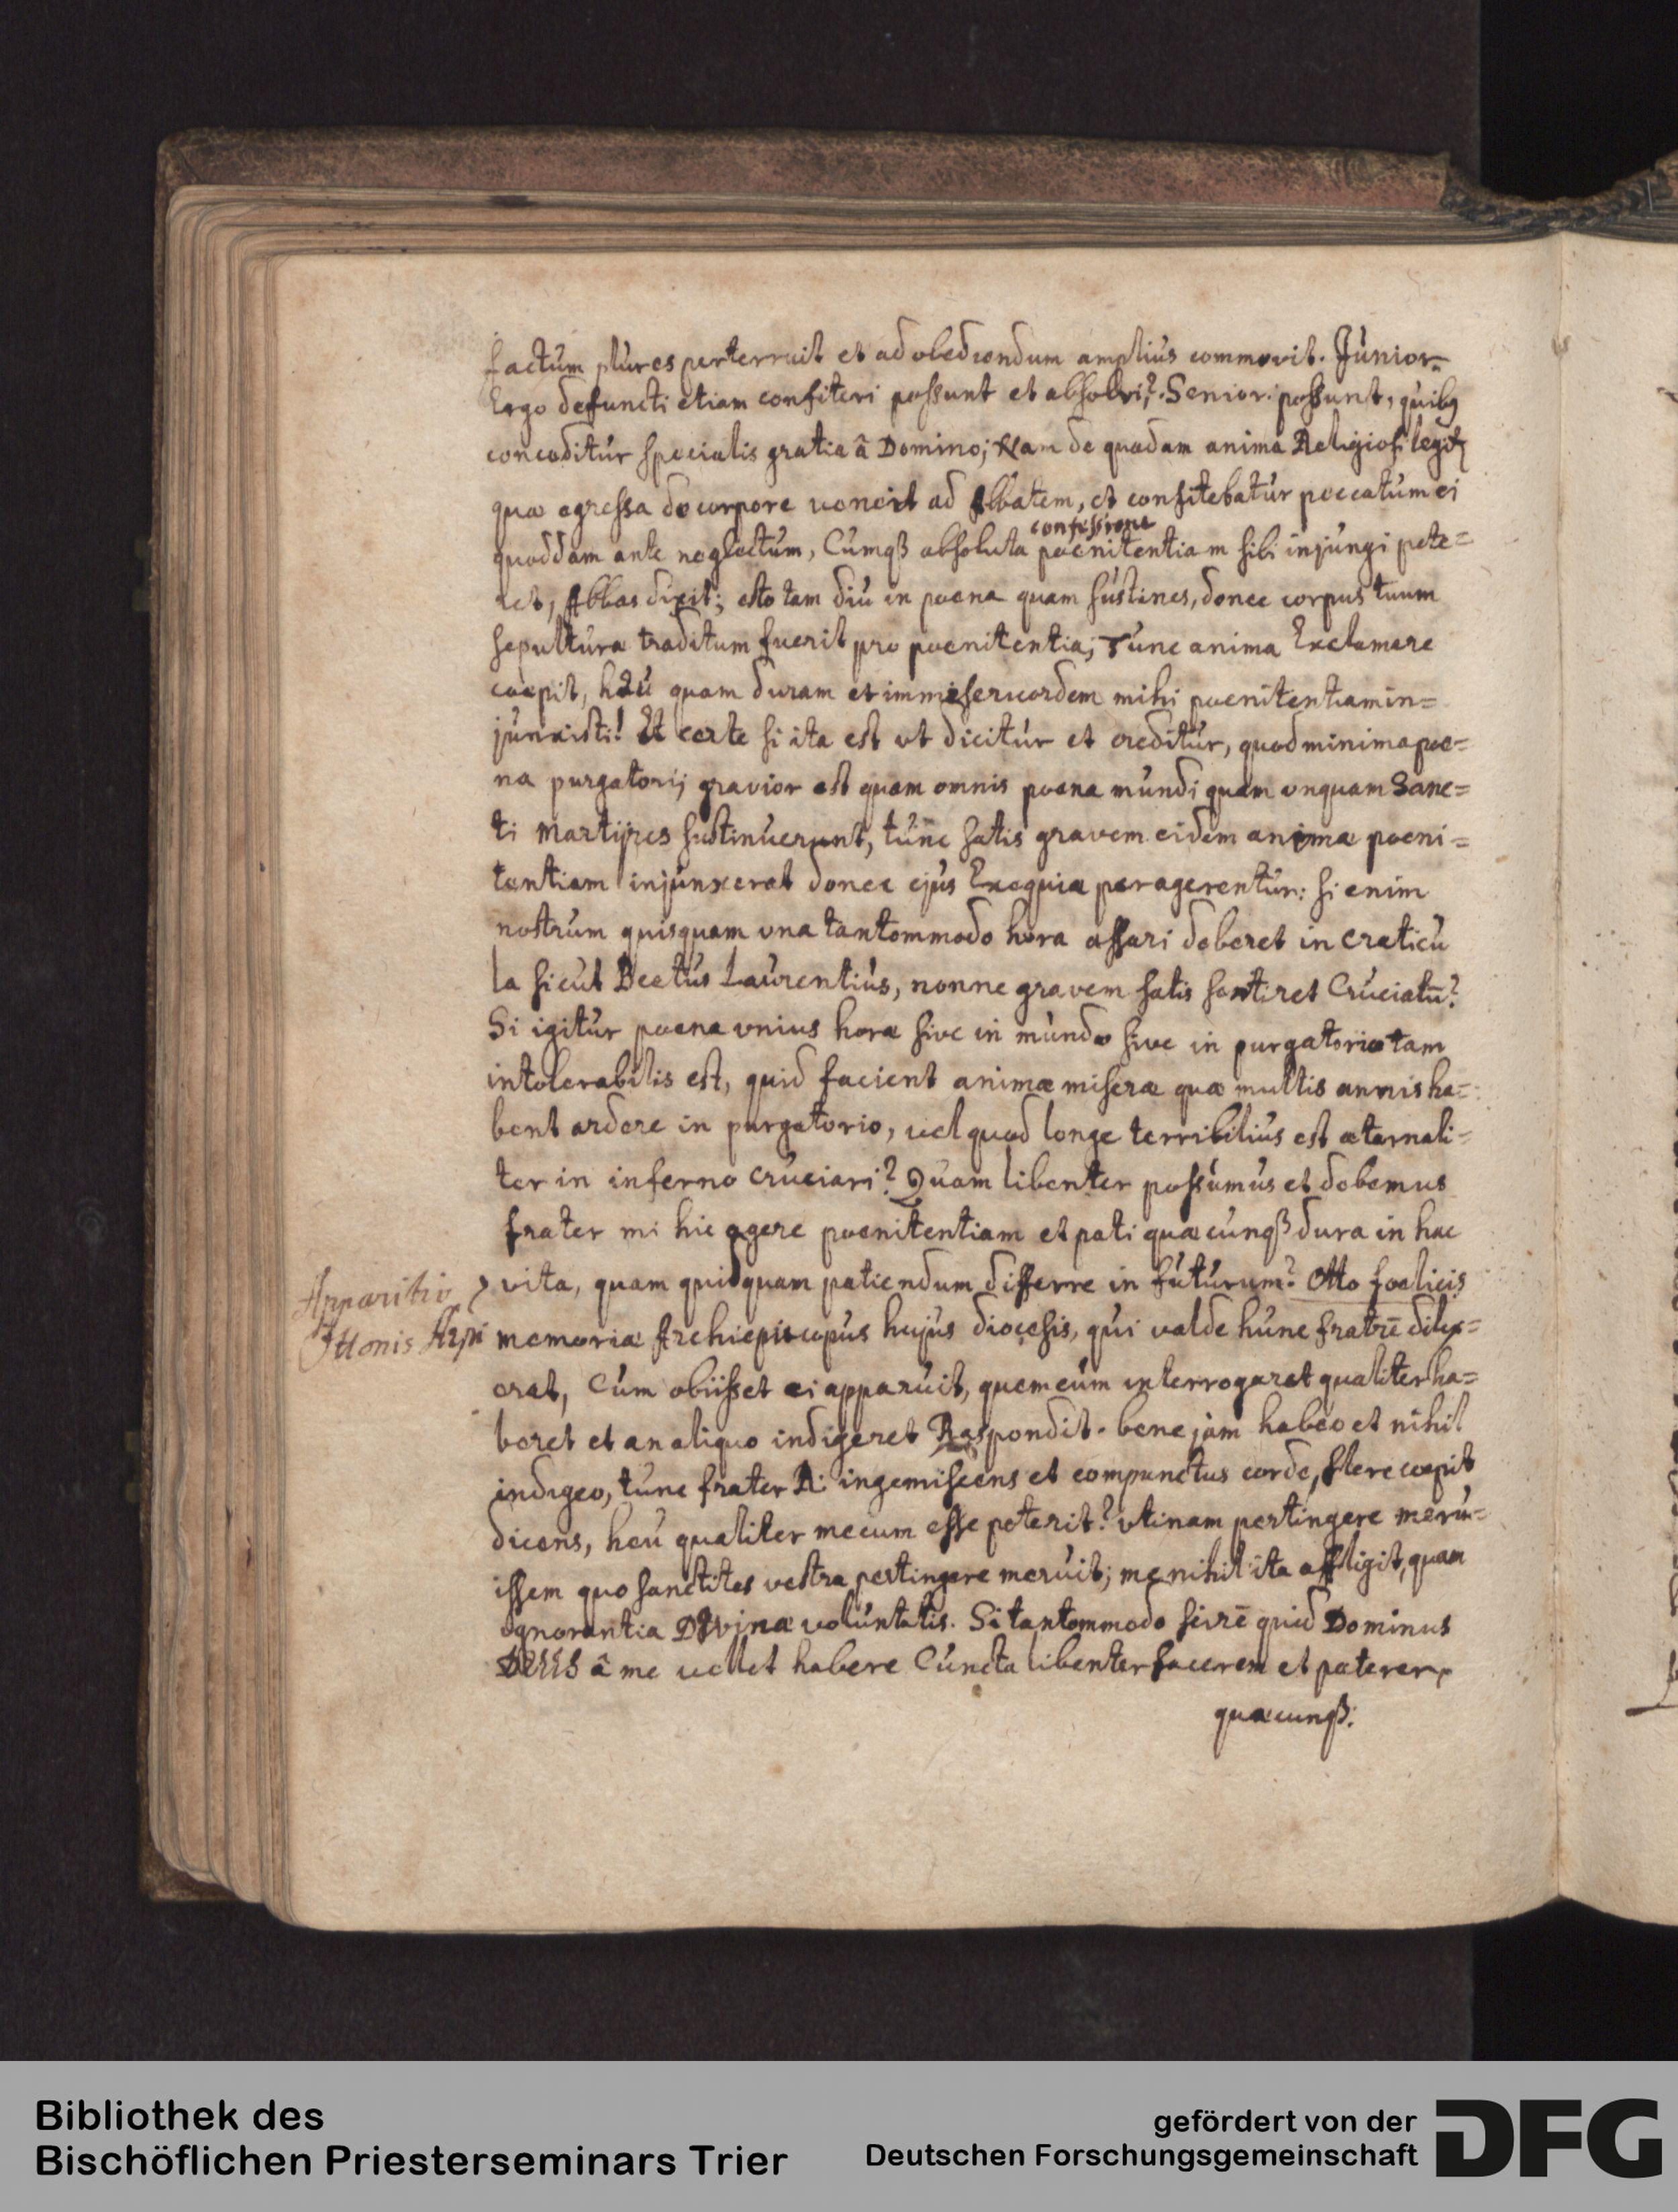 factum plures perterruit et ad obediendum amplius commovit. Junior
Ergo defuncti etiam confiteri possunt et absolvi? Senior: possunt, quibꝫ
conceditur specialis gratia â Domino; Nam de quadam anima Religiosi legitꝛ
quæ egressa de corpore venerit ad Abbatem, et confitebatur peccatum ei
confessione
quoddam ante neglectum, Cumqß absoluta poenitentiam sibi injungi pete=
ret, Abbas dixit; esto tam diu in poena quam sustines, donec corpus tuum
sepulturæ traditum fuerit pro poenitentia; Tunc anima Exclamare
coepit, heu quam duram et immisericordem mihi poenitentiam in=
junxisti! Et certe si ita est ut dicitur et creditur, quod minima poe=
na purgatorij gravior est quam omnis poena mundi quam unquam Sanc=
ti Martijres sustinuerunt, tunc satis gravem eidem animæ poeni=
tentiam injunxerat donec ejus Exequiæ peragerentur: si enim
nostrum quisquam una tantommodo hora assari deberet in craticu
la sicut Beatus Laurentius, nonne gravem satis sentiret Cruciatū?
Si igitur poena unius horæ sive in mundo sive in purgatorio tam
intolerabilis est, quid facient animæ miseræ quæ multis annis ha=
bent ardere in purgatorio, vel quod longe terribilius est æternali=
ter in inferno cruciari? Quam libenter possumus et debemus
frater mi hic agere poenitentiam et pati quæcunqß dura in hac
Apparitio
vita, quam quidquam patiendum differre in futurum? Otto foelicis
Ottonis Arpi
memoriæ Archiepiscopus hujus diocesis, qui valde hunc fratrē dilex=
erat, Cum obiisset ei apparuit, quem cum interrogaret qualiter ha=
beret et an aliquo indigeret Respondit. bene jam habeo et nihil
indigeo, tunc frater R: ingemiscens et compunctus corde, flere coepit
dicens, heu qualiter mecum esse poterit? utinam pertingere meru=
issem quo sanctitas vestra pertingere meruit; me nihil ita affligit, quam
ignorantia Divinæ voluntatis. Si tantommodo scirē quid Dominus
DEUS â me vellet habere Cuncta libenter facerem et paterer
quæcunqß:
Bibliothek des
Bischöflichen Priesterseminars Trier
gefördert von der
Deutschen Forschungsgemeinschaft
DFG